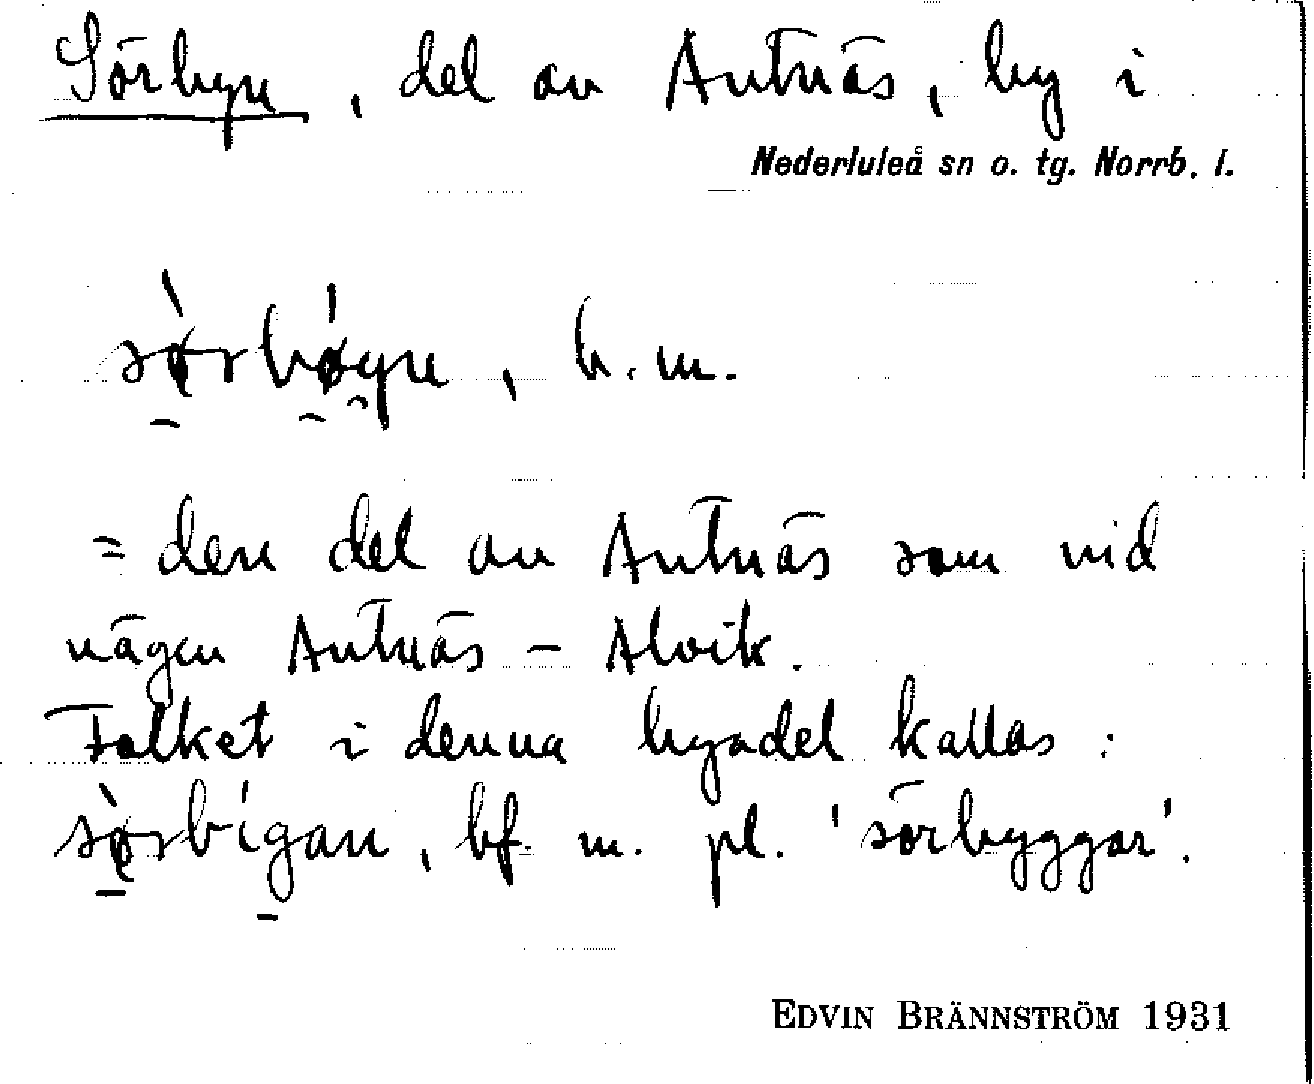 Sörbyn, del av Antnäs, by i
Nederluleå sn o. tg. Norrb. l.
sø̀rbǿyn, b. m.
= den del av Antnäs som vid
vägen Antnäs – Alvik.
Folket i denna byadel kallas:
sø̀rbígan, bf. m. pl. 'sörbyggar'.
EDVIN BRÄNNSTRÖM 1931